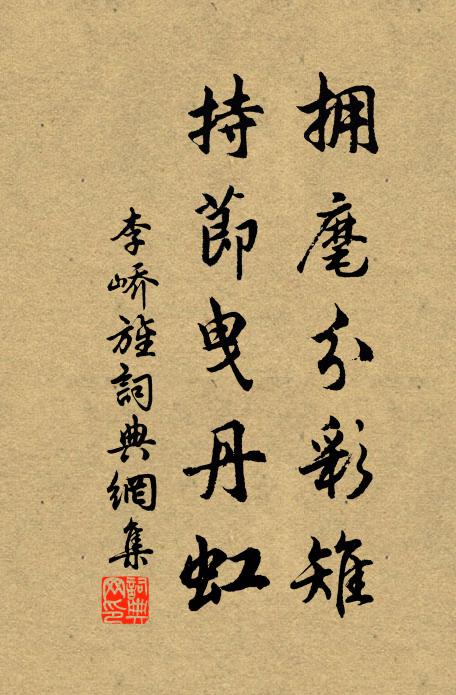 拥麾分彩雉
持節曳丹虹
李嶠旌詞典網集
詞典网印